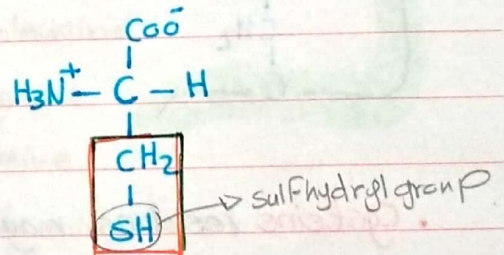 COO⁻
H₃N⁺ — C — H
CH₂
SH → sulfhydryl group